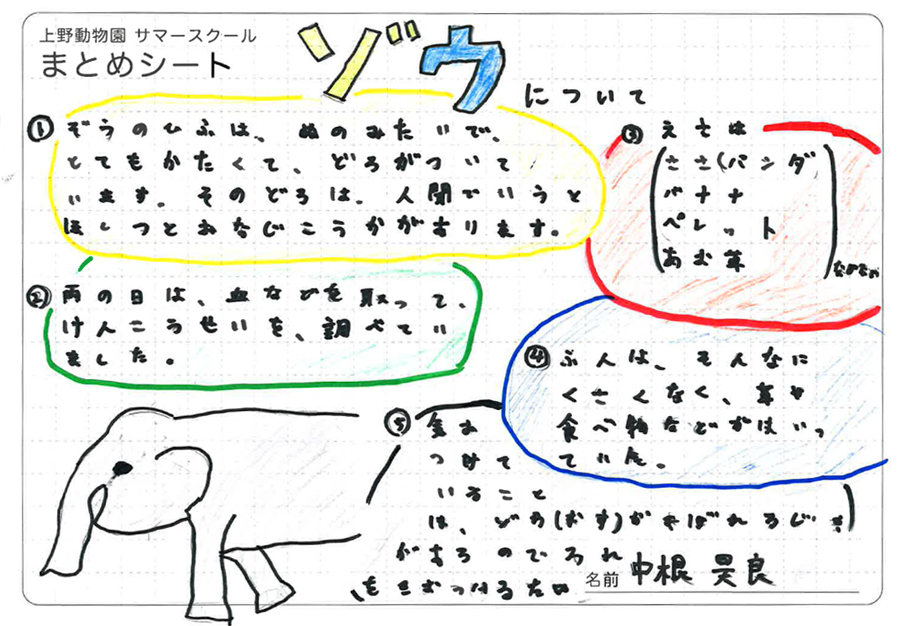 上野動物園 サマースクール
まとめシート
ゾウ
について
① ぞうのひふは、ぬのみたいで、
とてもかたくて、どろがついて
います。そのどろは、人間でいうと
ほしつとおなじこうかがあります。
② 雨の日は、血などを取って、
けんこうせいを、調べてい
ました。
③ えさは
ささ(パンダ
バナナ
ペレット
あむ草
などなど
④ ふんは、そんなに
くさくなく、草や
食べ物などがはいっ
ていた。
⑤ 気お
つけて
いること
は、ぞう(おす)が
があるのでそれ
をきおつけるため
名前 中根 昊良